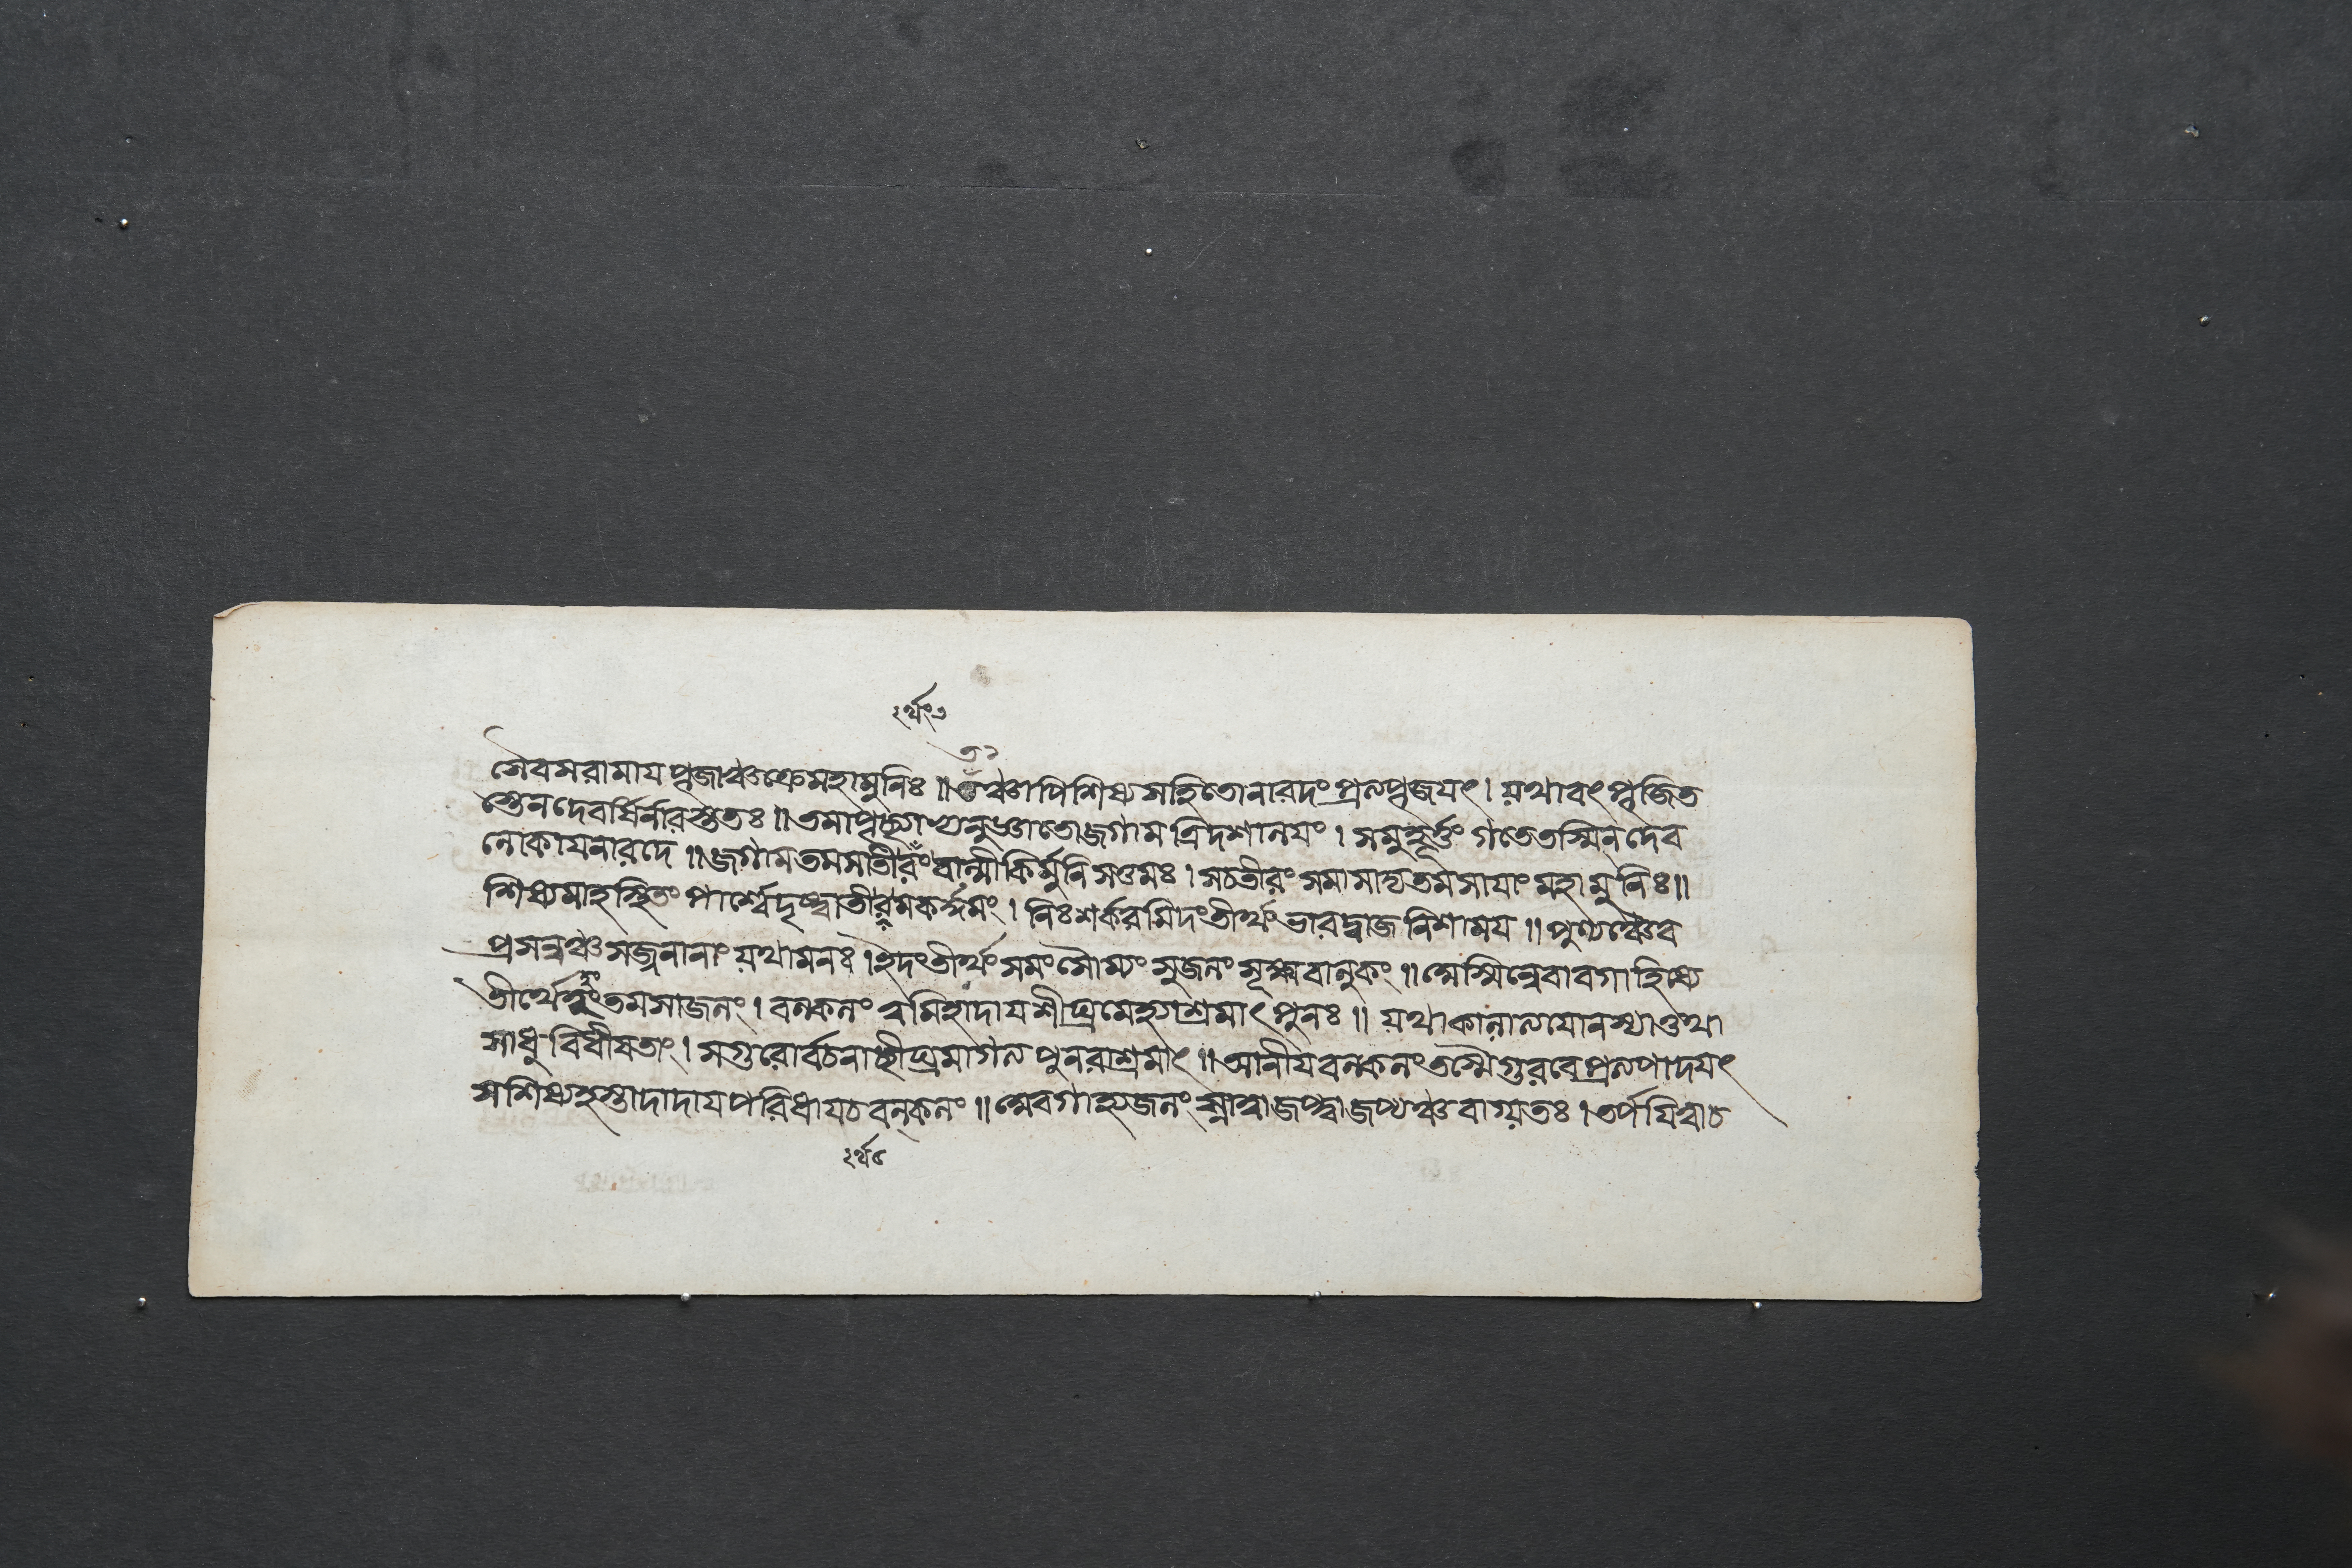 শৈবমরামায পূজাঞ্চক্রেমহামুনিঃ ॥ তঞ্চাপিশিষ্যসহিতোনারদং প্রত্যপূজযৎ । যথাবৎ পূজিত
স্তেনদেবর্ষির্নারদস্ততঃ ॥ তমাপৃচ্ছ্যাভ্যনুজ্ঞাতোজগামত্রিদশালযং । সমুহূর্ত্তং গতেতস্মিন্ দেব
লোকাযনারদে ॥ জগামতমসাতীরংবাল্মীকির্মুনিসত্তমঃ । সচতীরং সমাসাদ্যতমসাযাং মহামুনিঃ ॥
শিষ্যমাহস্থিতং পার্শ্বেদৃষ্ট্বাতীর্থমকর্দ্দমং । নিঃশর্করমিদংতীর্থং ভারদ্বাজ নিশাময ॥ পুণ্যঞ্চৈব
প্রসন্নঞ্চসজ্জনানাং যথামনঃ । ইদংতীর্থং সমংসৌম্যং সুজলং সূক্ষ্মবালুকং ॥ অস্মিন্নেবাবগাহিষ্যে
তীর্থে তমসাজলং । বল্কলং ত্বমিহাদাযশীঘ্রমেহ্যাশ্রমাৎ পুনঃ ॥ যথাকালাত্যযোনস্যাত্তথা
সাধু বিধীযতাং । সগুরোর্বচনাচ্ছীঘ্রমাগত্য পুনরাশ্রমাৎ ॥ আনীযবল্কলংতস্মৈগুরবেপ্রত্যপাদযৎ
সশিষ্যহস্তাদাদাযপরিধাযচ বল্কলং ॥ অবগাহ্যজলং স্নাত্বাজপ্ত্বাজপ্যঞ্চবাগ্যতঃ । তর্পযিত্বাচ